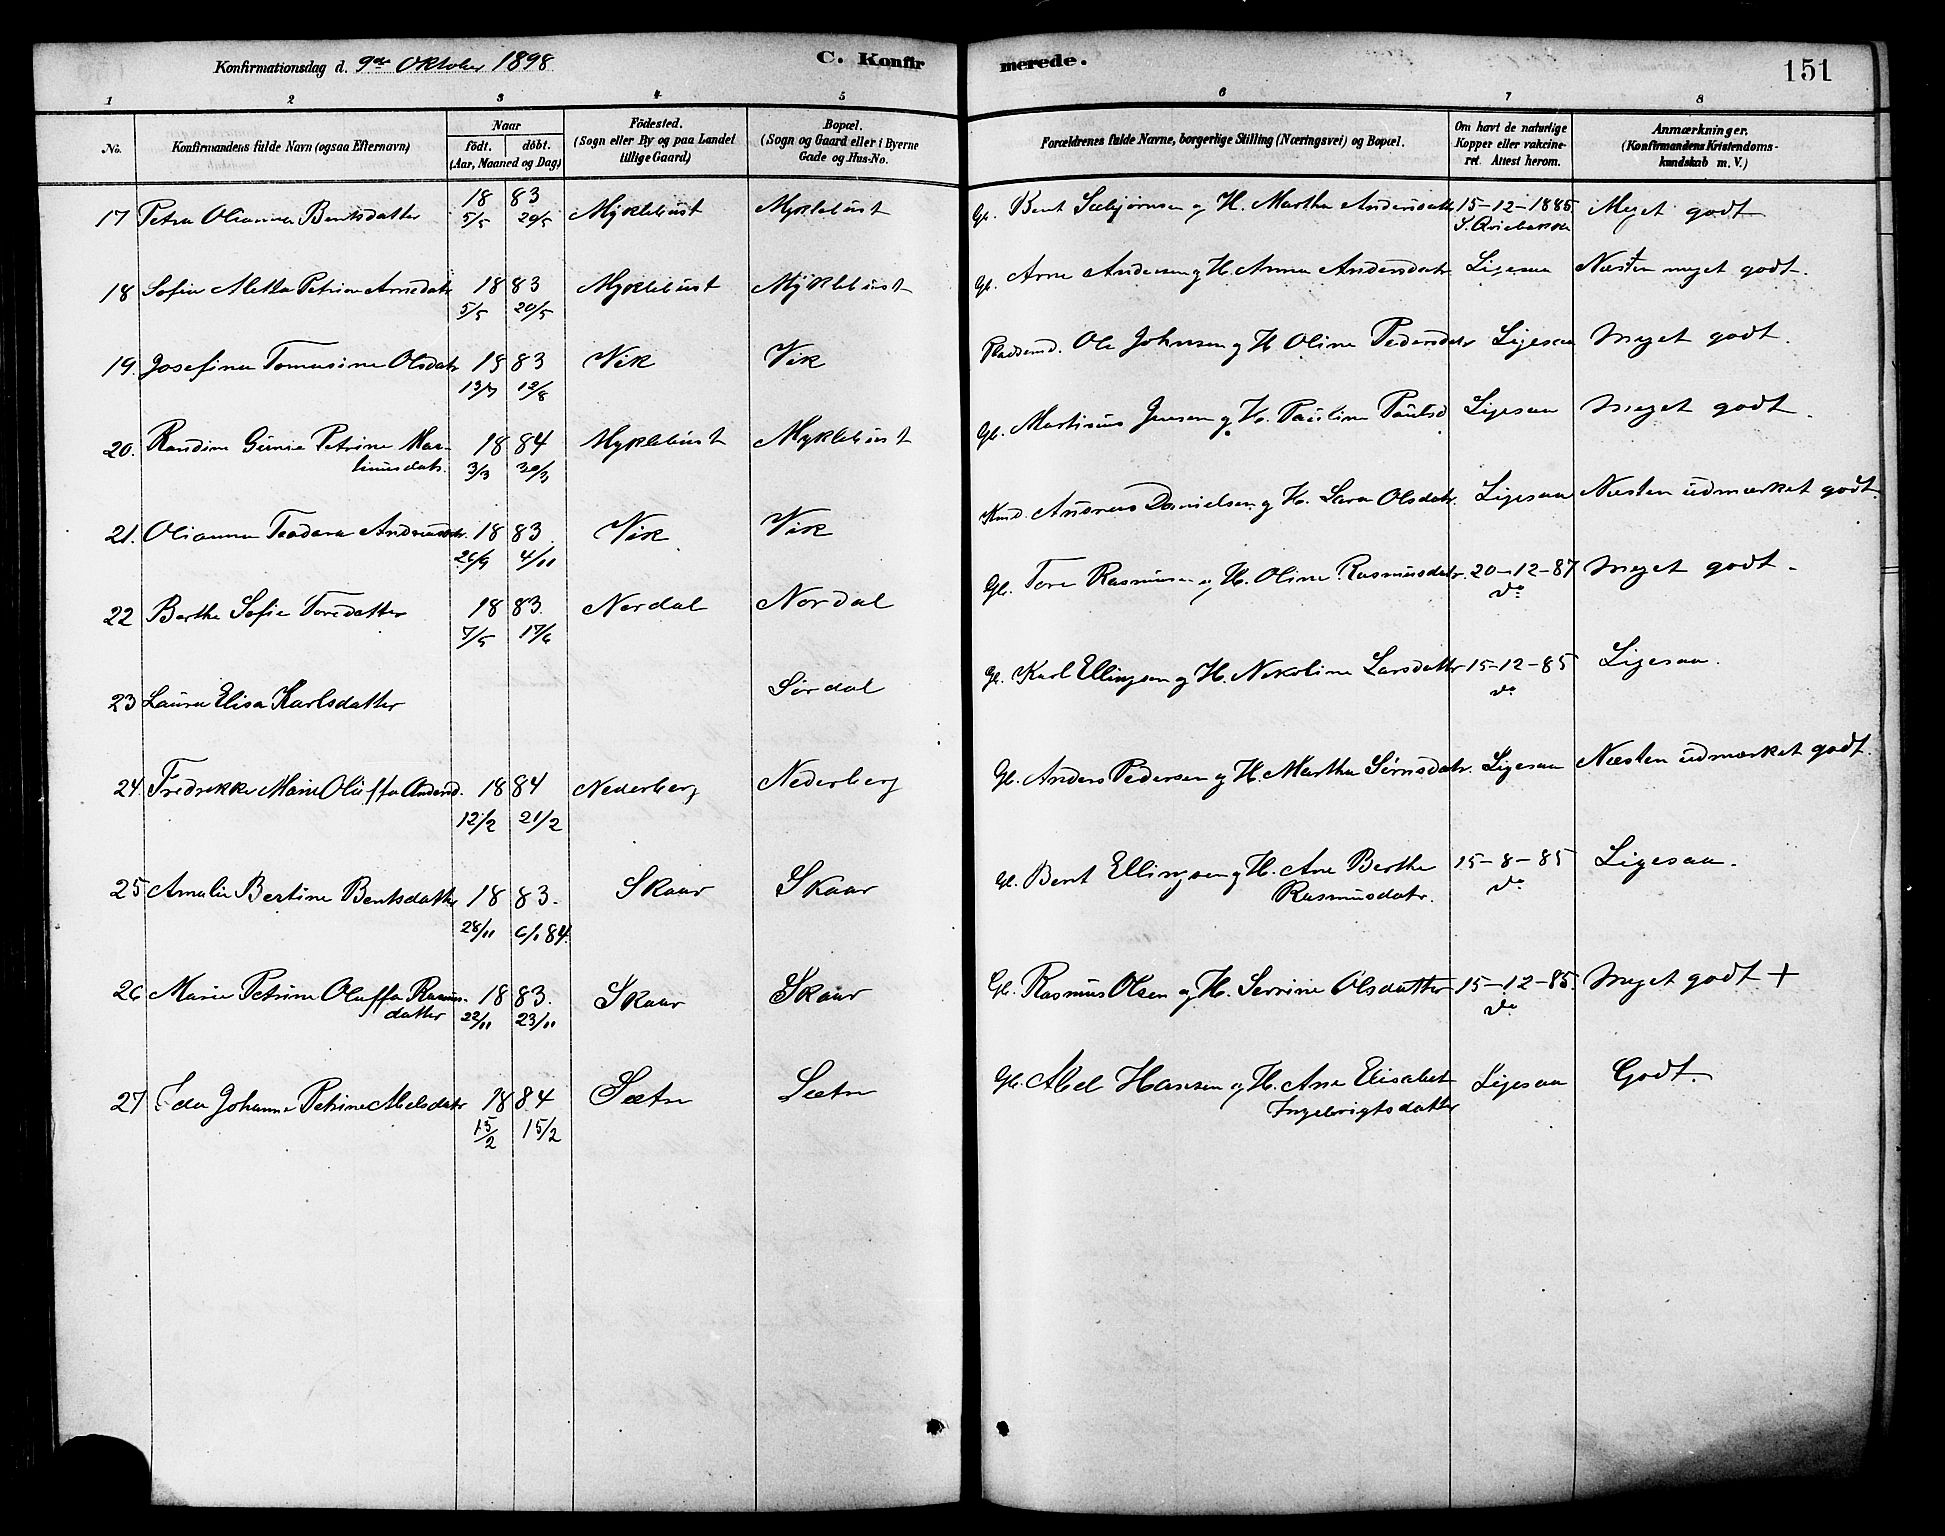 Konfirmationsdag d. 9de Oktober 1898.
C. Konfirmerede.
151
1 2 3 4 5 6 7 8
No.
Konfirmandens fulde Navn (ogsaa Efternavn)
Naar
födt. döbt.
(Aar, Maaned og Dag)
Födested.
(Sogn eller By og paa Landet
tillige Gaard)
Bopæl.
(Sogn og Gaard eller i Byerne
Gade og Hus-No.
Forældrenes fulde Navne, borgerlige Stilling (Næringsvei) og Bopæl.
Om havt de naturlige
Kopper eller vakcine-
ret. Attest herom.
Anmærkninger.
(Konfirmandens Kristendoms-
kundskab m. V.)
17 Petra Olianna Bentsdatter 18 83 Myklebust Myklebust Gb. Bent Sæbjørnsen og H. Martha Andersdatter 15-12-1885 Meget godt
5/5 20/5
18 Sofie Metta Petrine Arnedatr 18 83 Myklebust Myklebust Gb. Arne Andersen og H. Anna Andersdatr. Ligesaa Næsten meget godt.
5/5 20/5
19. Josefine Tomasine Olsdatr 18 83 Vik Vik Pladsmd. Ole Johnsen og H Oline Pedersdatr Ligesaa Meget godt.
13/7 12/8
20. Randine Petrine Mar- 18 84 Myklebust Myklebust Gb. Martinus Jensen og H. Pauline Paulsd Ligesaa Meget godt.
tinusdatr. 3/3 30/3
21. Olianna Teodora Andreasdtr. 18 83. Vik Vik Kmd. Andreas Danielsen og H. Sara Olsdatr. Ligesaa Næsten udmærket godt.
26/9 4/11
22 Berthe Sofie Toredatter 18 83. Nordal Nordal Gb. Tore Rasmusen og H. Oline Rasmusdatr. 20-12-87 Meget godt.
7/5 17/6 do
23 Laura Elisa Karlsdatter Sørdal Gb. Karl Ellingsen og H. Nikoline Larsdatter 15-12-85 Ligesaa.
do
24. Fredrikke Marie Oluffa Andersd. 18 84 Nederberg Nederberg Gb. Anders Pedersen og H. Martha Sørnsdatr. Ligesaa Næsten udmærket godt.
12/2 21/2
25 Amalie Bertine Bentsdatter 18 83. Skaar Skaar Gb. Bent Ellingsen og H. Ane Berthe 15-8-85 Ligesaa.
28/11 6/1 84. Rasmusdatr. do
26 Marie Petrine Oluffa Rasmus- 18 83. Skaar Skaar Gb. Rasmus Olsen og H. Serrine Olsdatter 15-12-85. Meget godt +
datter 22/11 23/11 do
27 Ida Johanne Petrine Abelsdatr 18 84 Sætre Sætre Gb. Abel Hansen og H. Ane Elisabet Ligesaa Godt.
15/2 15/2 Ingebrigtsdatter